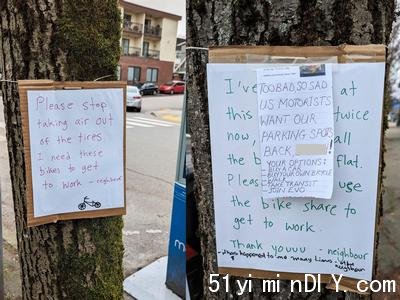 Please stop
taking air out
of the tires
I need these
bikes to get
to work - neighbour
I've
at
this
twice
now,
all
the b
flat.
Please
use
the bike share to
get to work.
Thank youuu - neighbour
- This happened to me many times - other
neighbour
TOO BAD, SO SAD
US MOTORISTS
WANT OUR
PARKING SPOTS
BACK.
YOUR OPTIONS:
- BUY A CAR
- BUY YOUR OWN BICYCLE
- WALK
- TAKE TRANSIT
- JOIN EVO
51yiminDIY.com